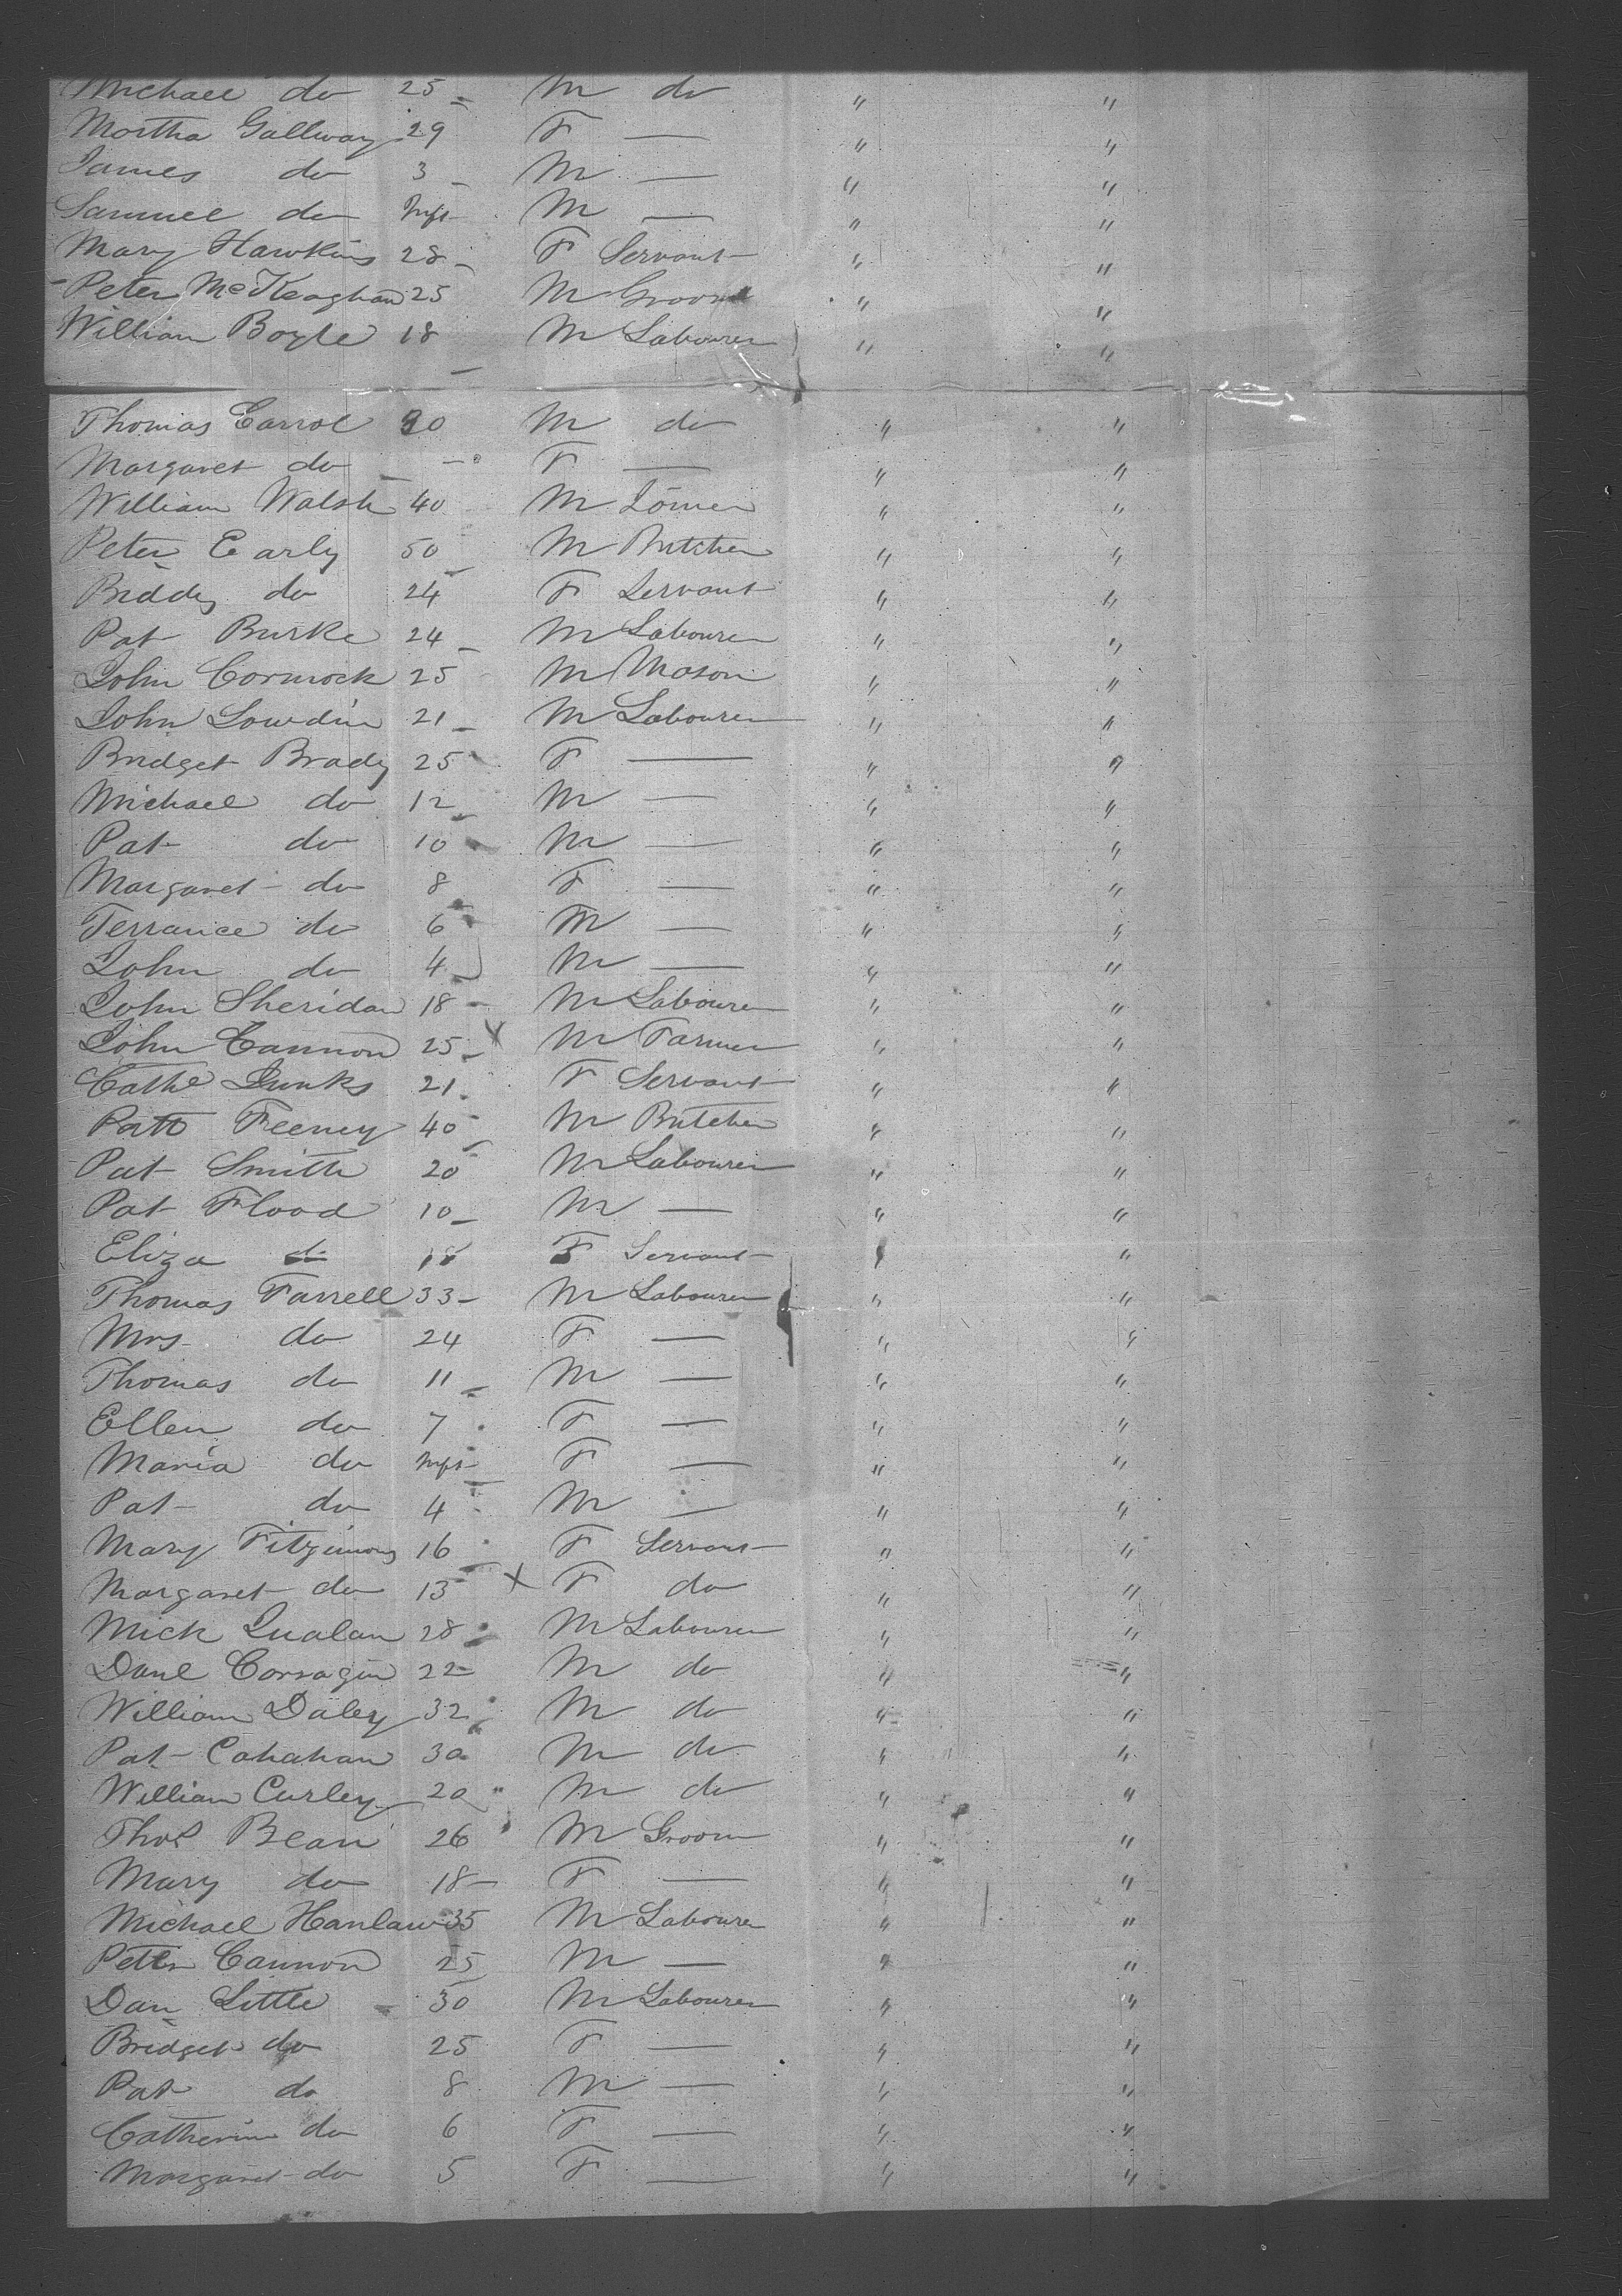 Michael do 25 M do " "
Martha Gallway 29 F — " "
James do 3 M — " "
Samuel do Inft M — " "
Mary Hawkins 28 F Servant " "
Peter McKeaghan 25 M Groom " "
William Boyle 18 M Labourer " "
Thomas Carrol 20 M do " "
Margaret do — F — " "
William Walsh 40 M Joiner " "
Peter Early 50 M Butcher " "
Biddy do 24 F Servant " "
Pat Burke 24 M Labourer " "
John Cormock 25 M Mason " "
John Lowdin 21 M Labourer " "
Bridget Brady 25 F — " "
Michael do 12 M — " "
Pat do 10 M — " "
Margaret do 8 F — " "
Terrance do 6 M — " "
John do 4 M — " "
John Sheridan 18 M Labourer " "
John Cannon 25 X M Farmer " "
Cathe Junks 21 F Servant " "
Patt Feeney 40 M Butcher " "
Pat Smith 20 M Labourer " "
Pat Flood 10 M — " "
Eliza do 18 F Servant " "
Thomas Farrell 33 M Labourer " "
Mrs do 24 F — " "
Thomas do 11 M — " "
Ellen do 7 F — " "
Maria do Inft F — " "
Pat do 4 M — " "
Mary Fitzimons 16 F Servant " "
Margaret do 13 X F do " "
Mick 28 M Labourer " "
Danl Corragin 22 M do " "
William Daley 32 M do " "
Pat Cahahan 30 M do " "
William Curley 20 M do " "
Thos Bean 26 M Groom " "
Mary do 18 F — " "
Michael Hanlaw 35 M Labourer " "
Peter Cannon 25 M — " "
Dan Little 30 M Labourer " "
Bridget do 25 F — " "
Pat do 8 M — " "
Catherine do 6 F — " "
Margaret do 5 F — " "